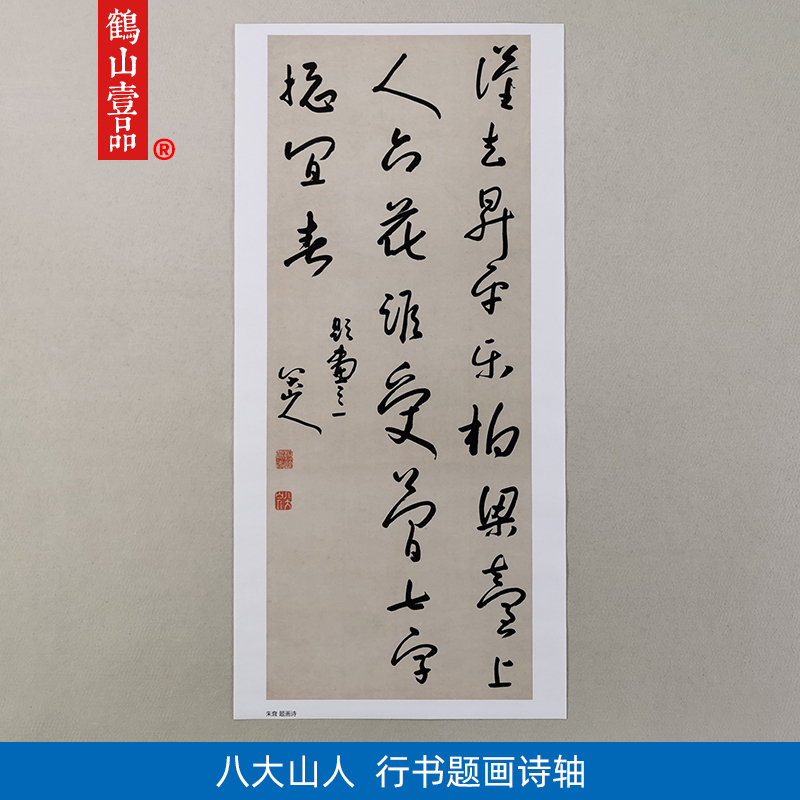 鶴山壹品
®
漢去昇平乐柏梁臺上
人六花誰受簡七字
揔宜春
題畫之一
八大山人
朱耷 题画诗
八大山人 行书题画诗轴